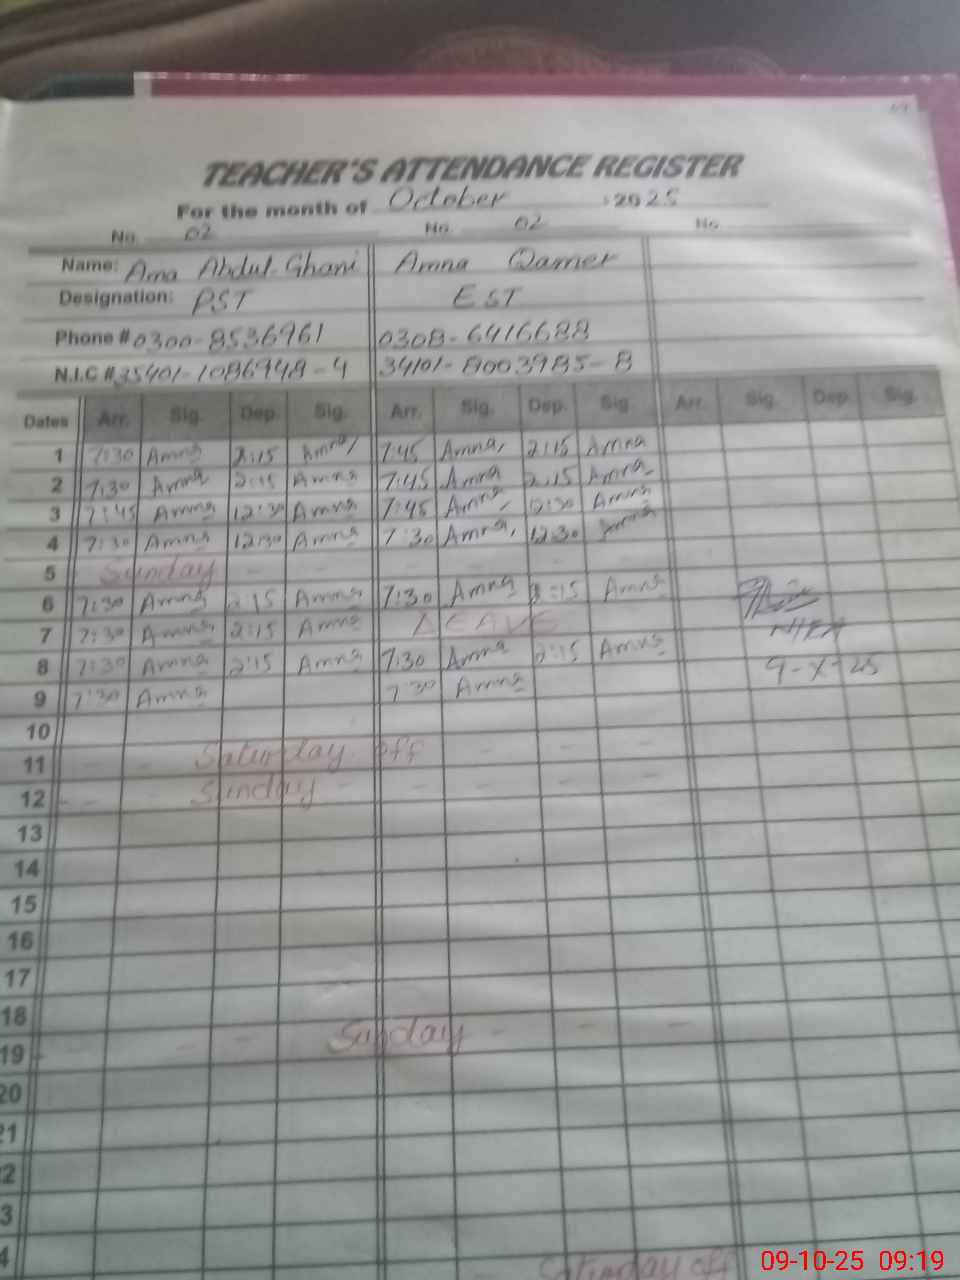 TEACHER'S ATTENDANCE REGISTER
For the month of October 2025
No. 02 No. 02 No.
Name: Ama Abdul Ghani Amna Qamer
Designation: PST EST
Phone # 0300-8536961 0308-6416688
N.I.C # 35401-1086948-4 34101-8003985-8
Dates Arr. Sig. Dep. Sig. Arr. Sig. Dep. Sig. Arr. Sig. Dep. Sig.
1 7:30 Amna 2:15 Amna 7:45 Amna 2:15 Amna
2 7:30 Amna 2:15 Amna 7:45 Amna 2:15 Amna
3 7:45 Amna 12:30 Amna 7:45 Amna 12:30 Amna
4 7:30 Amna 12:30 Amna 7:30 Amna 12:30 Amna
5 Sunday - - - - - -
6 7:30 Amna 2:15 Amna 7:30 Amna 2:15 Amna
7 7:30 Amna 2:15 Amna LEAVE
8 7:30 Amna 2:15 Amna 7:30 Amna 2:15 Amna 9-X-25
9 7:30 Amna 7:30 Amna
10
11 - - Saturday off - - -
12 - - Sunday - - - - -
13
14
15
16
17
18
19 - - - Sunday - - -
20
21
22
23
24 Saturday off
09-10-25 09:19